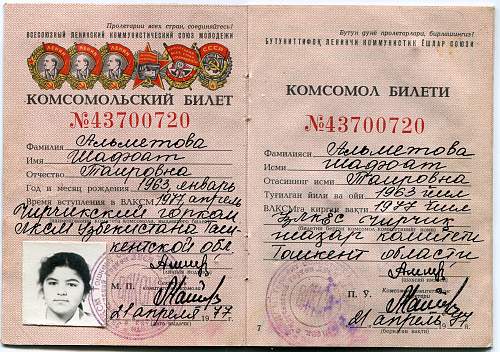 Пролетарии всех стран, соединяйтесь!
ВСЕСОЮЗНЫЙ ЛЕНИНСКИЙ КОММУНИСТИЧЕСКИЙ СОЮЗ МОЛОДЕЖИ
КОМСОМОЛЬСКИЙ БИЛЕТ
№43700720
Фамилия Альметова
Имя Шаджоат
Отчество Таировна
Год и месяц рождения 1963, январь
Время вступления в ВЛКСМ 1977 апрель
Чирчикский горком
ЛКСМ Узбекистана Таш-
кентской обл
М. П.
21 апреля 1977 г.
Бутун дунё пролетарлари, бирлашингиз!
БУТУНИТТИФОҚ ЛЕНИНЧИ КОММУНИСТИК ЁШЛАР СОЮЗИ
КОМСОМОЛ БИЛЕТИ
№43700720
Фамилияси Альметова
Исми Шаджоат
Отасининг исми Таировна
Туғилган йили ва ойи 1963 йил
ВЛКСМга кирган вақти 1977 йил
ЎзЛКЁС Чирчиқ
шаҳар комитети
Тошкент области
П. У.
21 апрель 1977
7